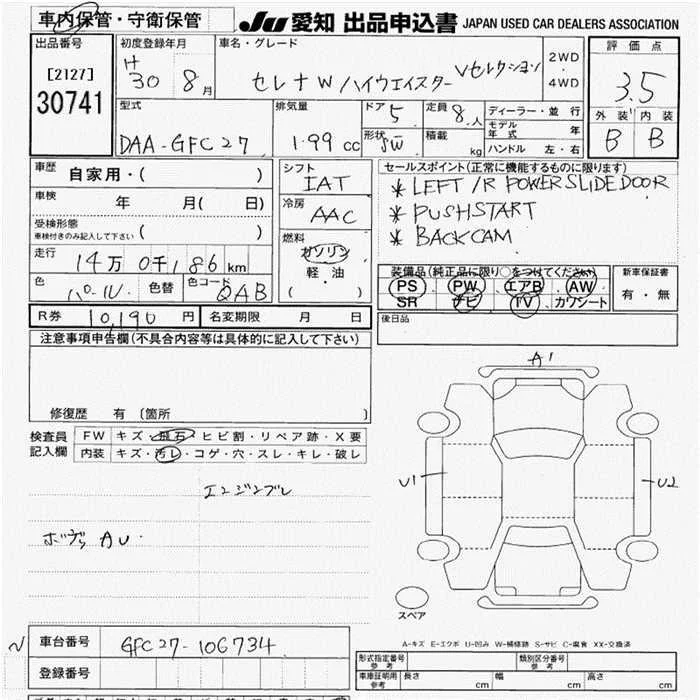 車内保管・守衛保管 JU 愛知 出品申込書 JAPAN USED CAR DEALERS ASSOCIATION
出品番号 初度登録年月 車名・グレード 評価点
[2127] H 30 年 8 月 セレナW/ハイウエイスター Vセレクション 2WD・4WD 3.5
30741 外装 内装
型式 排気量 ドア 5 定員 8人 ディーラー・並行 B B
モデル年式 年
DAA-GFC27 1.99 cc 形状 SW 積載 kg ハンドル 左・右
車歴 自家用・( ) シフト セールスポイント(正常に機能するものに限ります)
IAT * LEFT/R POWER SLIDE DOOR
車検 年 月( 日) 冷房 AAC * PUSHSTART
受検形態 * BACKCAM
車検付きのみ記入して下さい ( ) 燃料
走行 14万0千186km ガソリン 装備品(純正品に限り○をつけてください) 新車保証書
軽・油 PS PW エアB AW 有・無
色 パール 色替 色コード QAB ( ・ ) SR ナビ TV カワシート
R券 10,190 円 名変期限 月 日 後日品
注意事項申告欄(不具合内容等は具体的に記入して下さい)
A1
修復歴 有 〔箇所 〕
検査員 FW キズ・飛石・ヒビ割・リペア跡・X要
記入欄 内装 キズ・汚レ・コゲ・穴・スレ・キレ・破レ
U1 U2
エンジンブレ
ボデー AU
スペア
A-キズ E-エクボ U-凹み W-補修跡 S-サビ C-腐食 XX-交換済
車台番号 GFC27-106734
形式指定番号 参考 類別区分番号 参考
登録番号 車庫証明用 参考 長さ cm 幅 cm 高さ cm